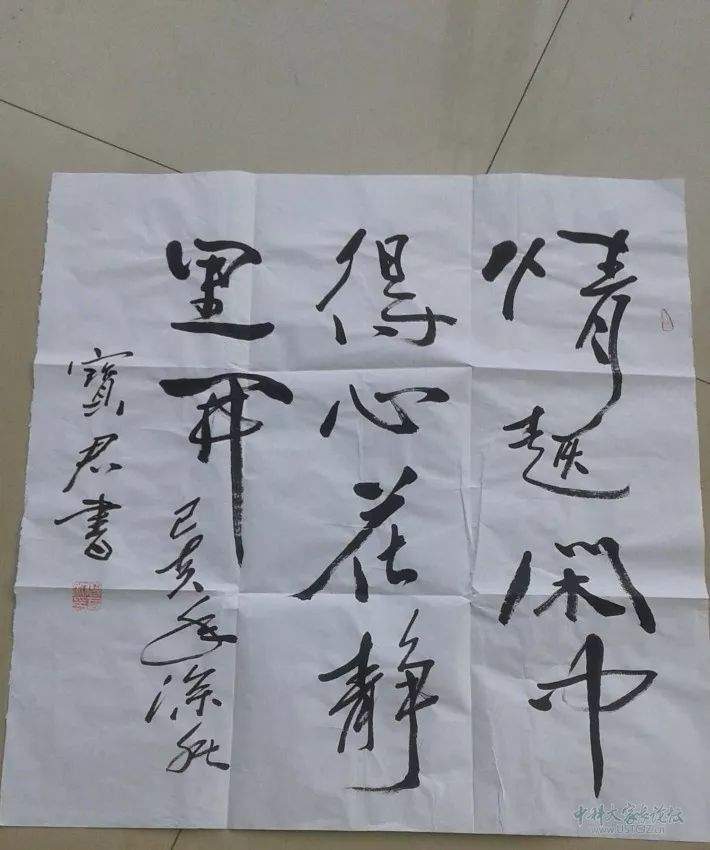 情趣闲中
得心花静
里开
己亥年深秋
宝君书
中科大家长论坛
www.USTCJZ.cn